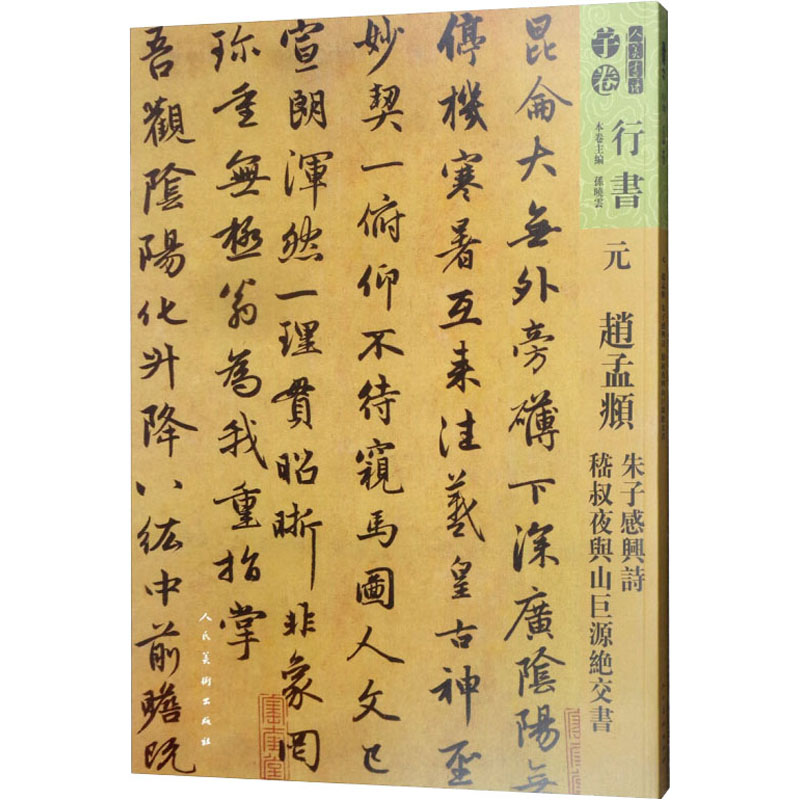 人美書譜
宇卷
行書
本卷主編 孫曉雲
元 趙孟頫
朱子感興詩
嵇叔夜與山巨源絶交書
昆侖大無外旁礴下深廣陰陽無
停機寒暑互来往羲皇古神聖
妙契一俯仰不待窺馬圖人文已
宣朗渾然一理貫昭晰非象罔
珍重無極翁為我重指掌
吾觀陰陽化升降八紘中前瞻既
人民美術出版社